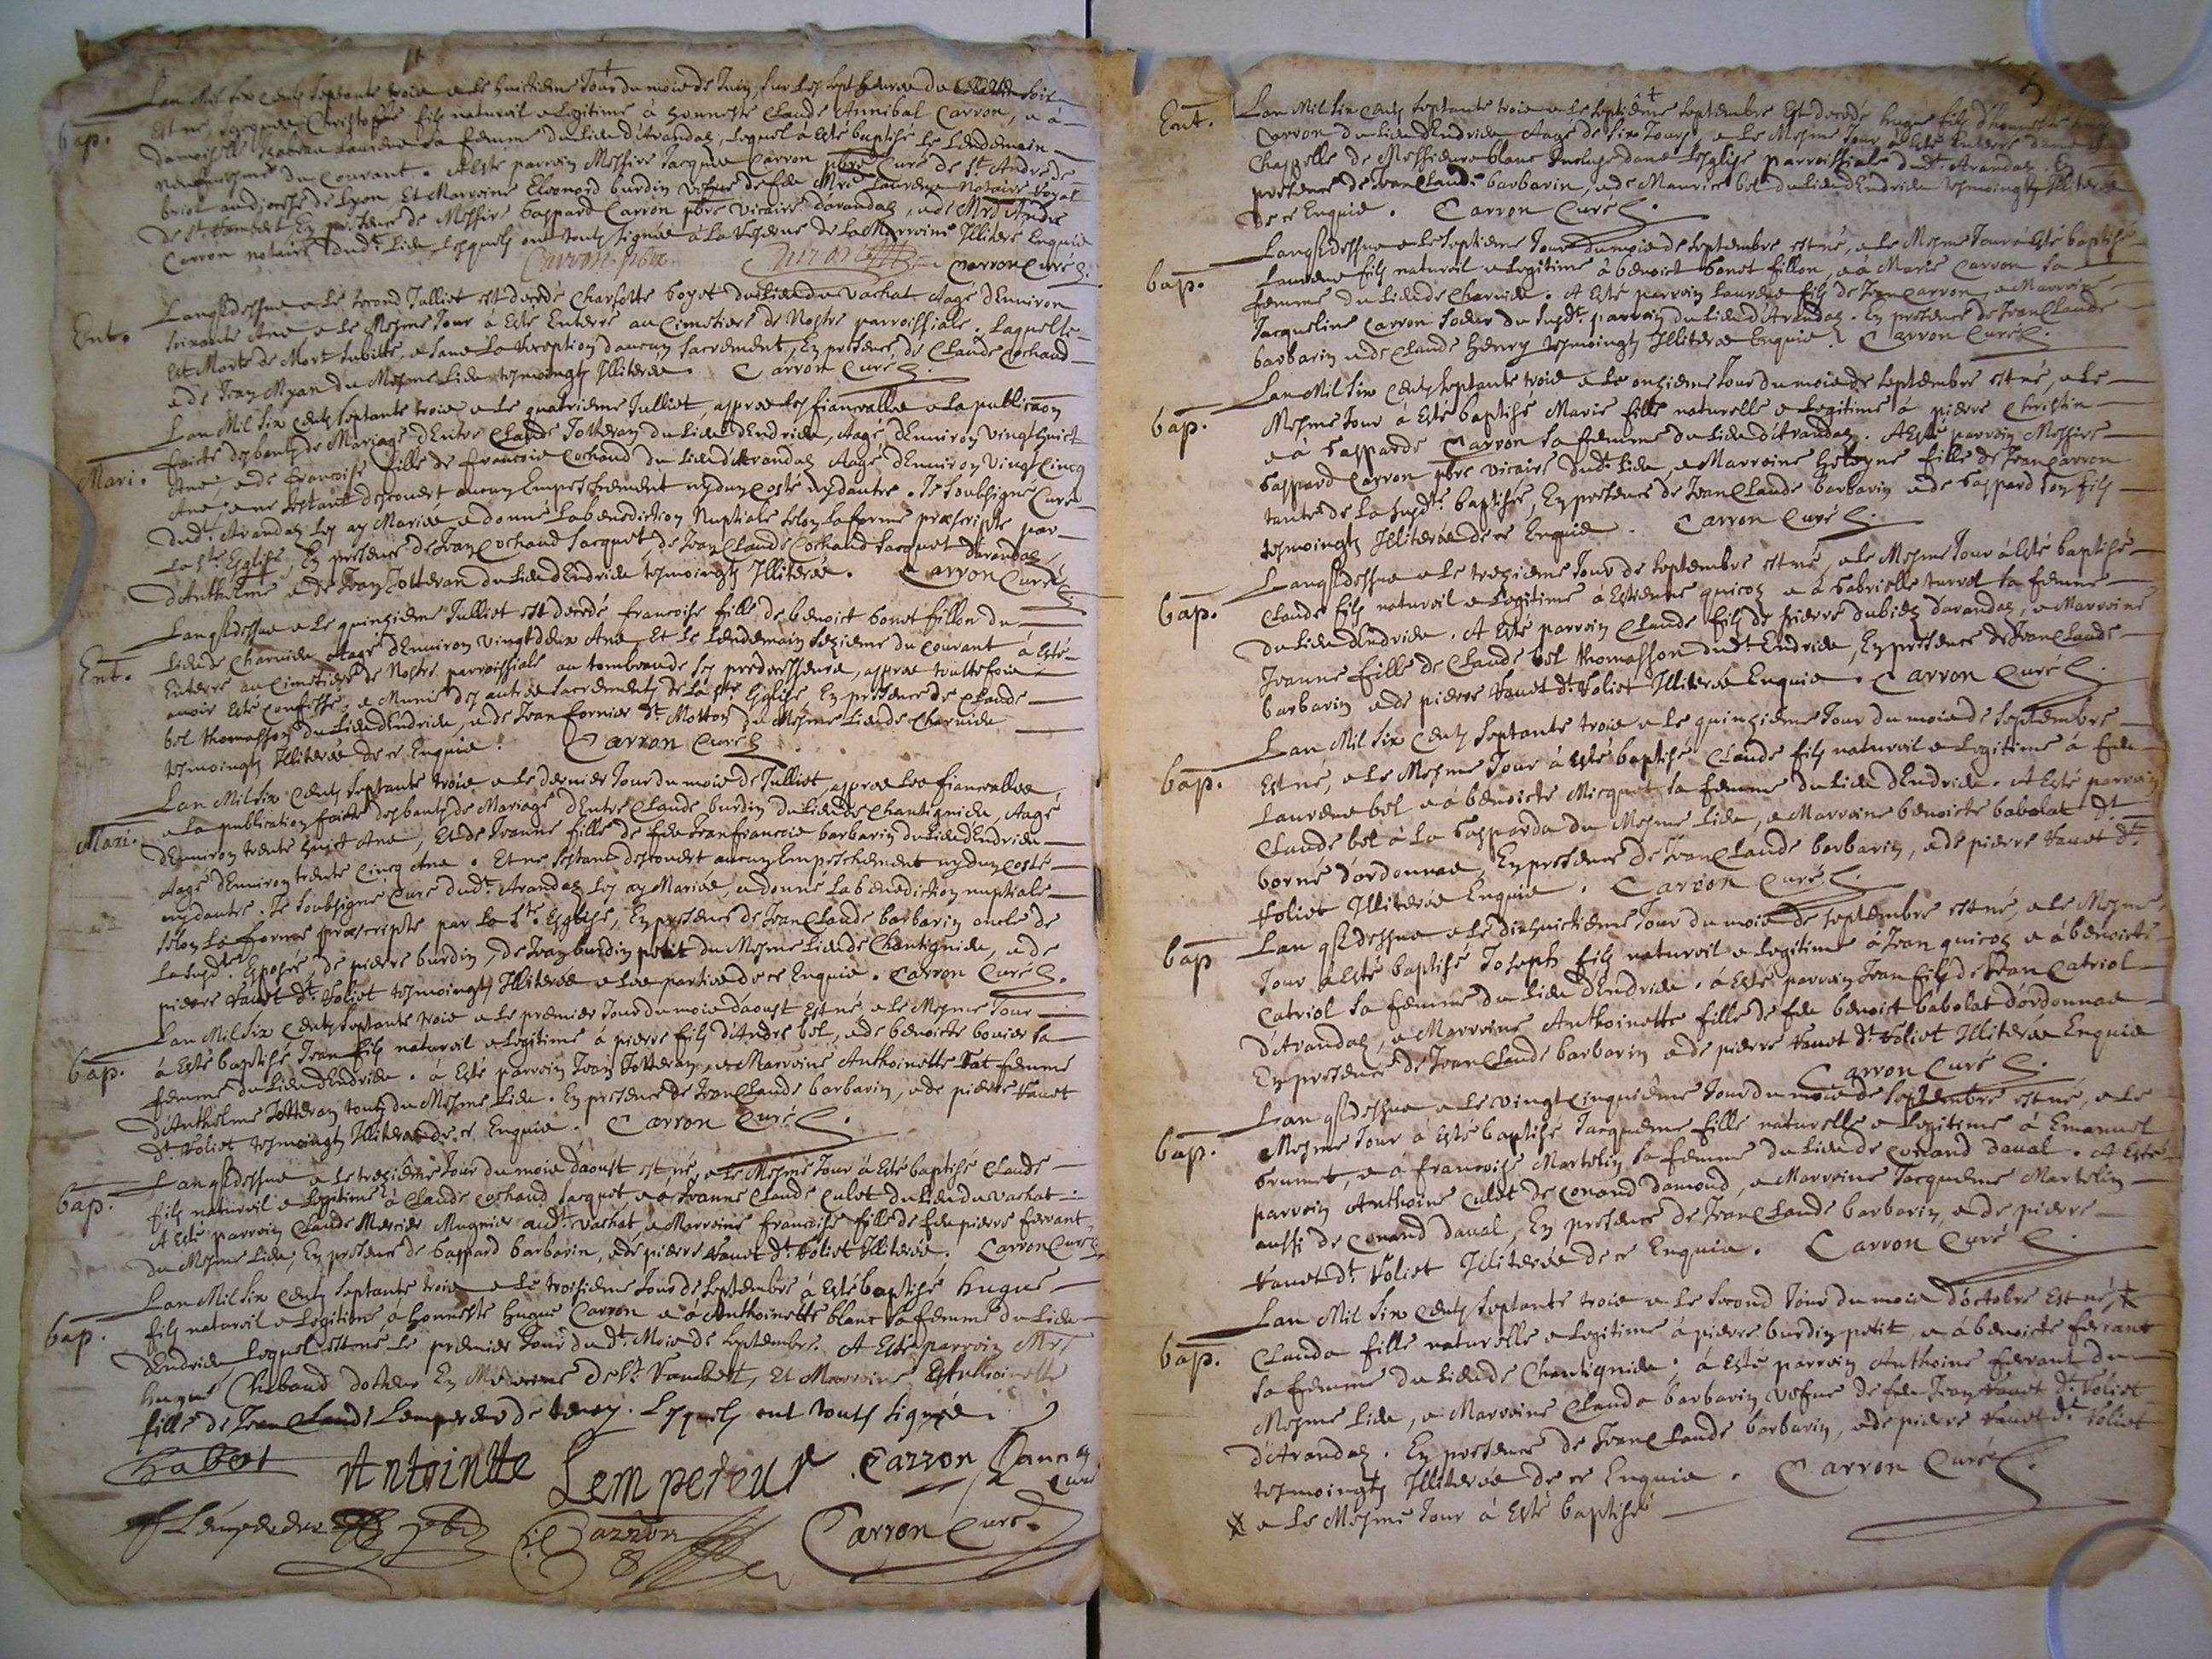 Lan Mil Six Centz Septante troie e le huictieme Jour du moie de Juin, sur les sept heures du soir
bap. Est né, Jacques Christophe filz naturel e Legitime à honneste Claude Annibal Carron, e à
damoiselle Laurene sa femme du Lieu d'Arandas, lequel à Esté baptisé le Lendemain
neufvieme du courant. A Esté parrain Messire Jacques Carron pbre Curé de St. André de
briol au diocese de Lyon, Et Marraine Eleonord burdin vefve de feu Mre Laurens Notaire Royal
de St. Rambert En presence de Messire Gaspard Carron pbre vicaire darandas, e de Mre André
Carron notaire dudt. Lieu, Lesquels ont toutz signés à La reserve de La Marraine Illiterée Enquise
Carron pbre Carron Carron Curé
Lan q̄ dessus e le second Julliet est decedé Charlotte boyet du Lieu du vachat Aagé dEnviron
Ent. soixante Ans e le Mesme Jour à Esté Enterré au Cimetiere de Nostre parroissiale. Laquelle
est Morte de Mort subitte, e sans La reception daucun sacrement, En presence, de Claude Cochaud
e de Jean Myan du Mesme Lieu tesmoingtz Illiteréz. Carron Curé
Lan Mil Six Centz Septante troie e le quatrieme Julliet, appres Les fiancailles e la publicaon
faicte des bantz de Mariage dEntre Claude Jotteran du Lieu dEndrieu, Aagé, dEnviron vingt huict
Mari. Ans, e de francoise fille de francois Cochaud du Lieu d'Arandas Aagé dEnviron vingt Cinq
Ans, e ne sestant descouvert aucun Empeschement ny dun costé ny dautre. Je soubsigné Curé
dudt. Arandas les ay Mariés e donné La benediction Nuptiale selon la forme prescripte par
La Ste. Esglise, En presence de Jean Cochaud Jacquet, de Jean Claude Cochaud Jacquet darandas,
d'Anthelme e de Jean Jotteran du Lieu dEndrieu tesmoingtz Illiteréz. Carron Curé
Lan q̄ dessus e le quinzieme Julliet est decedé francoise fille de benoict bonet fillon du
Ent. Lieu de Charvieu Aagé dEnviron vingt deux Ans, Et le Lendemain sezieme du courant à Esté
Enterré au Cimetiere de Nostre parroissiale au tombeau de ses predecesseurs, appres touttefois
avoir Esté confessé, e Munie des autres sacrementz de La Ste Esglise, En presence de Claude
bel thomasson du Lieu dEndrieu, e de Jean fornier dt. Motton du Mesme Lieu de Charvieu
tesmoingtz Illiteréz de ce Enquis. Carron Curé
Lan Mil Six Centz Septante troie e le dernier Jour du mois de Julliet, appres Les fiancailles,
e La publication faicte des bantz de Mariage dEntre Claude burdin du Lieu de Chantignieu, Aagé
Mari. dEnviron trente huict Ans, Et de Jeanne fille de feu Jean francois barbarin du Lieu dEndrieu
Aagé dEnviron trente Cinq Ans. Et ne sestant descouvert aucun Empeschement ny dun costé
ny dautre. Je soubsigné Curé dudt. Arandas les ay Mariés, e donné La benediction nuptiale
selon La forme prescripte par La Ste. Esglise, En presence de Jean Claude barbarin oncle de
La susdt. Esposée, de pierre burdin, de Jean burdin petit du Mesme Lieu de Chantignieu, e de
pierre Vanet dt. Voliet tesmoingtz Illiteréz e Les parties de ce Enquis. Carron Curé
Lan Mil Six Centz Septante troie e le premier Jour du mois daoust Est né, e le Mesme Jour
bap. à Esté baptisé Jean filz naturel e Legitime à pierre filz d'André bel, e de benoicte bovier sa
femme du Lieu dEndrieu. à Esté parrain Jean Jotteran, e Marraine Anthoinette Tat femme
d'Anthelme Jotteran toutz du Mesme Lieu. En presence de Jean Claude barbarin, e de pierre Vanet
dt. Voliet tesmoingtz Illiteréz de ce Enquis. Carron Curé
Lan q̄ dessus e le trezieme Jour du mois daoust est né, e Le Mesme Jour à Esté baptisé Claude
bap. filz naturel e Legitime à Claude Cochaud Jacquet e à Jeanne Claude Culet du Lieu du vachat
A Esté parrain Claude Mercier Mugnier audt. vachat, e Marraine francoise fille de feu pierre ferrant
du Mesme Lieu, En presence de Gaspard barbarin, e de pierre Vanet dt. Voliet Illiteréz. Carron Curé
Lan Mil Six Centz Septante troie e le troisieme Jour de septembre à Esté baptisé hugue
bap. filz naturel e Legitime, à honneste hugue Carron e à Anthoinette blanc sa femme du Lieu
dEndrieu, lequel est né Le premier Jour du dt. Mois de septembre. A Esté parrain Mre
hugue Chabaud docteur En Medecine de St. Rambert, Et Marraine Anthoinette
fille de Jean Claude Lempereur de tenay. Lesquels ont touts signés.
Antointte Lempereur Carron
Carron Carron Curé
5
Ent. Lan Mil Six Centz Septante troie e le septieme septembre Est decedé hugue filz d'honneste
Carron du Lieu dEndrieu Aagé de six Jours, e le Mesme Jour à Esté Enterré dans la
Chappelle de Messieurs blanc Incluse dans Lesglise parroissiale dudt. Arandas. En
presence de Jean Claude barbarin, e de Maurice bel du Lieu dEndrieu tesmoingtz Illiteréz
de ce Enquis. Carron Curé
Lan q̄ dessus e le septieme Jour du mois de septembre est né, e le Mesme Jour à Esté baptisé
bap. Laurens filz naturel e Legitime à benoict bonet fillon, e à Marie Carron sa
femme du Lieu de Charvieu. A Esté parrain Laurens filz de Jean Carron, e Marraine
Jacqueline Carron soeur du susdt. parrain du Lieu d'Arandas. En presence de Jean Claude
barbarin e de Claude henry tesmoingtz Illiteréz Enquis. Carron Curé
Lan Mil Six Centz Septante troie e Le onzieme Jour du mois de septembre est né, e Le
bap. Mesme Jour à Esté baptisé Marie fille naturelle e Legitime à pierre Christin
e à Gasparde Carron sa femme du Lieu d'Arandas. A Esté parrain Messire
Gaspard Carron pbre vicaire dudt. Lieu, e Marraine fille de Jean Carron
tante de La susdt. baptisée, En presence de Jean Claude barbarin e de Gaspard son filz
tesmoingtz Illiteréz de ce Enquis. Carron Curé
Lan q̄ dessus e le trezieme Jour de septembre est né, e le Mesme Jour à Esté baptisé
bap. Claude filz naturel e Legitime à Estienne quicoz e à Gabrielle turrel sa femme
du Lieu dEndrieu. A Esté parrain Claude filz de pierre dubiez darandas, e Marraine
Jeanne fille de Claude bel thomasson dudt. Endrieu, En presence de Jean Claude
barbarin e de pierre Vanet dt. Voliet Illiteréz Enquis. Carron Curé
Lan Mil Six Centz Septante troie e le quinzieme Jour du mois de septembre
bap. Est né, e le Mesme Jour à Esté baptisé Claude filz naturel e Legitime à feu
Laurens bel e à benoicte Micquet sa femme du Lieu dEndrieu. A Esté parrain
Claude bel à La Gasparda du Mesme Lieu, e Marraine benoicte babolat dt.
borné d'ordonnas, En presence de Jean Claude barbarin, e de pierre Vanet dt.
Voliet Illiteréz Enquis. Carron Curé
Lan q̄ dessus e Le dixhuictieme Jour du mois de septembre est né, e Le Mesme
bap Jour à Esté baptisé Joseph filz naturel e Legitime à Jean quicoz e à benoicte
Catriol sa femme du Lieu dEndrieu. à Esté parrain Jean filz de Jean Catriol
d'Arandas, e Marraine Anthoinette fille de feu benoict babolat d'ordonnas
En presence de Jean Claude barbarin e de pierre Vanet dt. Voliet Illiteréz Enquis
Carron Curé
Lan q̄ dessus e Le vingt Cinquieme Jour du mois de septembre est né, e Le
bap. Mesme Jour à Esté baptisé Jacqueme fille naturelle e Legitime à Emanuel
brunet, e à francoise Martelin sa femme du Lieu de Conand daval. A Esté
parrain Anthoine Culet de Conand damond, e Marraine Jacqueme Martelin
aussi de Conand daval, En presence de Jean Claude barbarin, e de pierre
Vanet dt. Voliet Illiteréz de ce Enquis. Carron Curé
Lan Mil Six Centz Septante troie e Le second Jour du mois d'octobre Est né,
bap. Clauda fille naturelle e Legitime à pierre burdin petit, e à benoicte ferrant
sa femme du Lieu de Chantignieu, à Esté parrain Anthoine ferrant du
Mesme Lieu, e Marraine Clauda barbarin vefve de feu Jean Vanet dt. Voliet
d'Arandas. En presence de Jean Claude barbarin, e de pierre Vanet dt. Voliet
tesmoingtz Illiteréz de ce Enquis. Carron Curé
e Le Mesme Jour à Esté baptisé